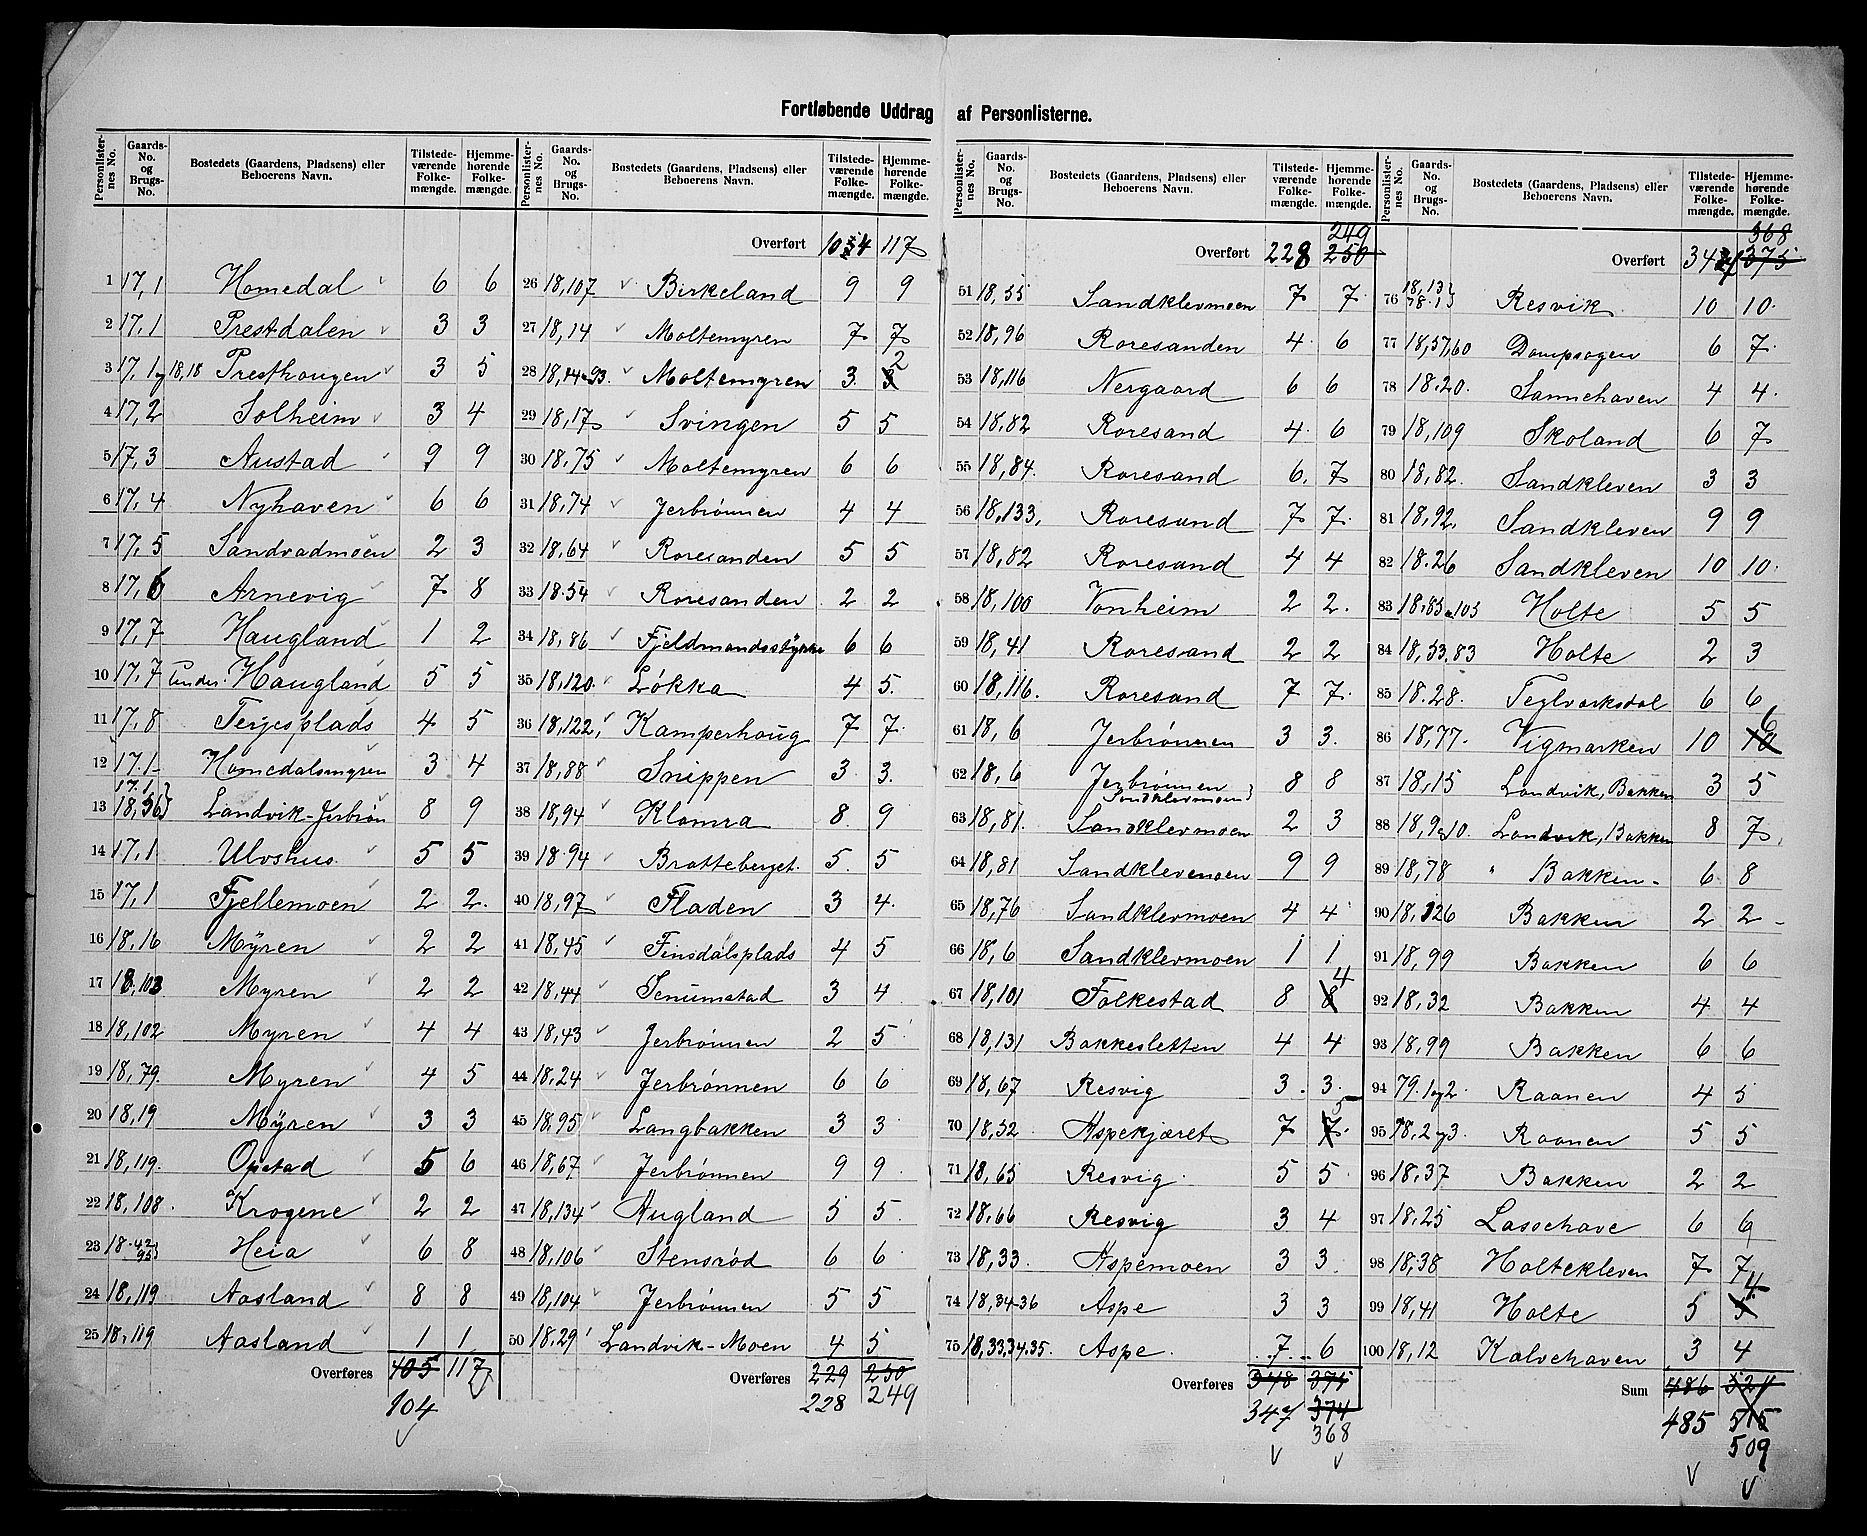 Fortløbende Uddrag af Personlisterne.
Personlisternes No. Gaards-No. og Brugs-No. Bostedets (Gaardens, Pladsens) eller Beboerens Navn. Tilstedeværende Folkemængde. Hjemmehørende Folkemængde.
1 17,1 Homedal 6 6
2 17,1 Prestdalen 3 3
3 17,1 og 18,18 Presthougen 3 5
4 17,2 Solheim 3 4
5 17,3 Austad 9 9
6 17,4 Nyhaven 6 6
7 17,5 Sandvadmoen 2 3
8 17,6 Arnevig 7 8
9 17,7 Haugland 1 2
10 17,7 under Haugland 5 5
11 17,8 Terjesplads 4 5
12 17.1 Homedalsmyren 3 4
13 17.1 18,56} Landvik-Jerbrøn 8 9
14 17,1 Ulvshus 5 5
15 17,1 Fjellemoen 2 2
16 18,16 Myren 2 2
17 18,103 Myren 2 2
18 18,102 Myren 4 4
19 18,79. Myren 4 5
20 18,19 Myren 3 3
21 18,119. Opstad 5 6
22 18,108. Krogene 2 2
23 18.42 95} Heia 6 8
24 18,119 Aasland 8 8
25 18,119 Aasland 1 1
Overføres 105 117
104
Personlisternes No. Gaards-No. og Brugs-No. Bostedets (Gaardens, Pladsens) eller Beboerens Navn. Tilstedeværende Folkemængde. Hjemmehørende Folkemængde.
Overført 104 117
26 18,107 Birkeland 9 9
27 18,14 Moltemyren 7 7
28 18,14-93. Moltemyren 3. 3 2
29 18,17 Svingen 5 5
30 18,75 Moltemyren 6 6
31 18,74 Jerbrønnen 4 4
32 18,64 Roresanden 5 5
33 18.54 Roresanden 2 2
34 18,86 Fjeldmandsstykke 6 6
35 18,120. Løkka 4 5.
36 18,122, Kamperhoug 7 7.
37 18,88 Snippen 3. 3.
38 18,94 Klomra 8. 9
39 18.94 Bratteberget. 5. 5
40 18,97 Fladen 3 4.
41 18,45 Finsdalsplads 4 5
42 18,44 Senumstad 3 4
43 18,43 Jerbrønnen 2 5
44 18,24 Jerbrønnen 6 6
45 18,95 Langbakken 3 3
46 18,67 Jerbrønnen 9 9.
47 18,134 Hugland 5 5.
48 18,106 Stensrød 6 6
49 18,104 Jerbrønnen 5 5
50 18.29 Landvik-Moen 4 5
Overføres 229 250
228 249
Personlisternes No. Gaards-No. og Brugs-No. Bostedets (Gaardens, Pladsens) eller Beboerens Navn. Tilstedeværende Folkemængde. Hjemmehørende Folkemængde.
249
Overført 228 250
51 18,55 Sandklevmoen 7 7.
52 18,96 Roresanden 4. 6
53 18,116 Nergaard 6 6
54 18,82 Roresand 4. 6
55 18,84. Roresand 6. 7
56 18,133, Roresand 7 7.
57 18,82 Roresand 4 4
58 18,100 Vonheim 2 2.
59 18,41 Roresand 2 2
60 18,116. Roresand 7 7.
61 18,6 Jerbrønnen 3 3.
62 18,6 Jerbrønnen Sandklevmoen} 8 8
63 18,81. Sandklevmoen 2 3
64 18,81 Sandklevmoen 9 9
65 18,76 Sandklevmoen 4 4
66 18,6 Sandklevmoen 1 1
67 18,101 Folkestad 8 8 4
68 18,131 Bakkesletten 4 4
69 18,67 Resvig 3. 3.
70 18.52 Aspekjæret 7 7. 5
71 18,65 Resvig 5 5
72 18.66 Resvig 3 4
73 18,33. Aspemoen 3 3
74 18,34-36 Aspe 3 3
75 18,33,34.35. Aspe 7 6
Overføres 348 375
347 374
368
Personlisternes No. Gaards-No. og Brugs-No. Bostedets (Gaardens, Pladsens) eller Beboerens Navn. Tilstedeværende Folkemængde. Hjemmehørende Folkemængde.
368
Overført 347 375
76 18,13 78.1} Resvik 10 10.
77 18,57,60 Dompsogen 6 7.
78 18.20. Sannehaven 4 4.
79 18,109 Skoland 6 7
80 18,82. Sandkleven 3 3
81 18,92. Sandkleven 9 9
82 18.26 Sandkleven 10 10.
83 18,85 103 Holte 5 5
84 18,53,83 Holte 2 3
85 18.28. Teglverksdal 6 6
86 18,77. Vigmarken 10 10 6
87 18,15 Landvik, Bakken 3 5
88 18,9 og 10. Landvik, Bakken 8 7.
89 18,78 " Bakken 6 8
90 18,126 Bakken 2 2
91 18,99 Bakken 6 6
92 18,32 Bakken 4 4
93 18,99 Bakken 6 6
94 79.1 og 2 Raanen 4 5
95 78.2 og 3. Raanen 5 5
96 18,37 Bakken 2 2
97 18,25 Lassehave 6 6
98 18,38 Holtekleven 7 7
99 18,41 Holte 5 5 4
100 18,12 Kalvehaven 3 4
Sum 486 521
485 515
509